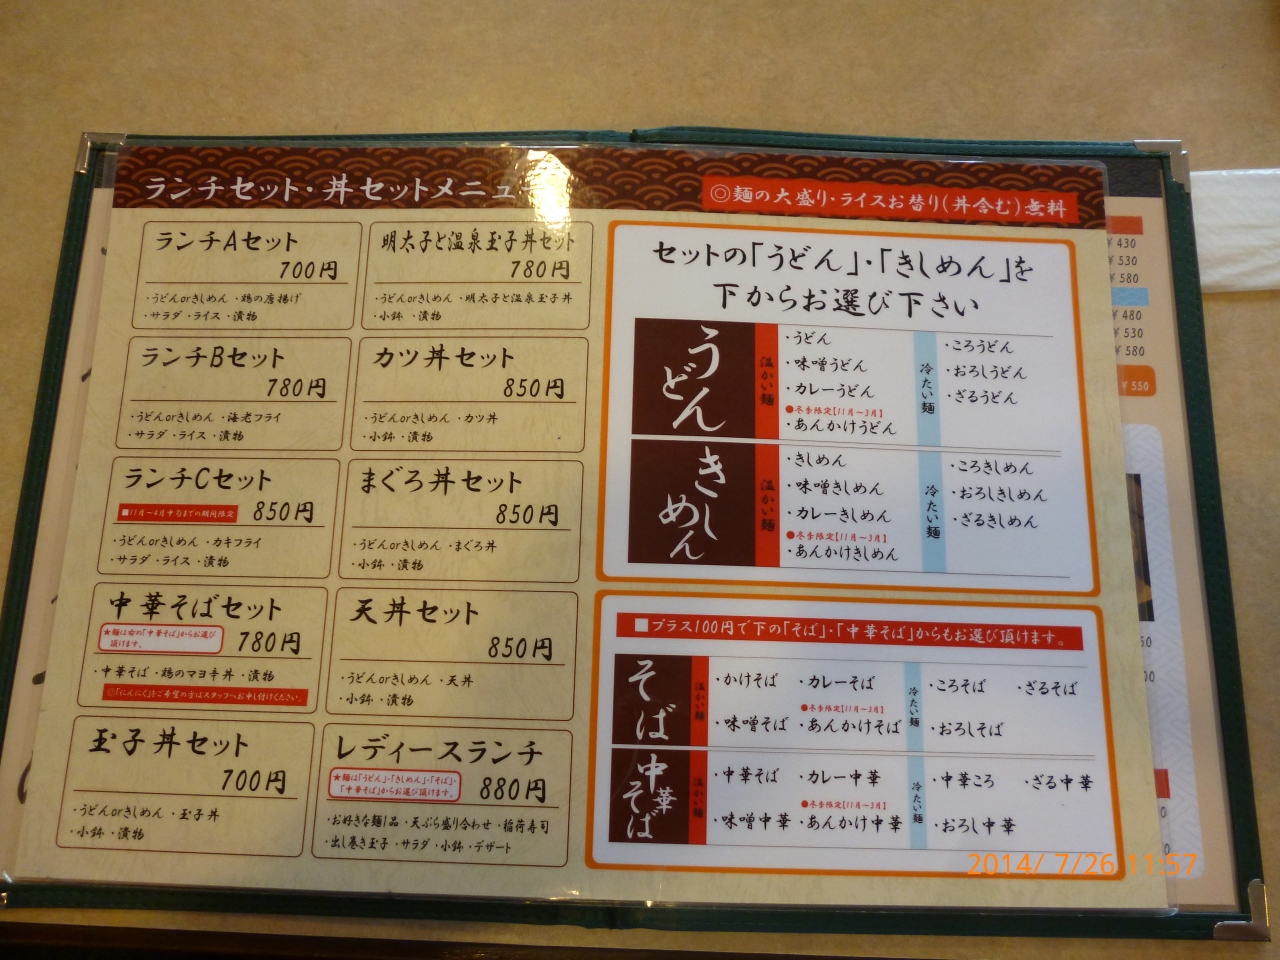 ランチセット・丼セットメニュ
◎麺の大盛り・ライスお替り(丼含む)無料
ランチAセット
700円
・うどんorきしめん ・鶏の唐揚げ
・サラダ ・ライス ・漬物
明太子と温泉玉子丼セット
780円
・うどんorきしめん ・明太子と温泉玉子丼
・小鉢 ・漬物
ランチBセット
780円
・うどんorきしめん ・海老フライ
・サラダ ・ライス ・漬物
カツ丼セット
850円
・うどんorきしめん ・カツ丼
・小鉢 ・漬物
ランチCセット
■11月〜4月中旬までの期間限定 850円
・うどんorきしめん ・カキフライ
・サラダ ・ライス ・漬物
まぐろ丼セット
850円
・うどんorきしめん ・まぐろ丼
・小鉢 ・漬物
中華そばセット
★麺は右の「中華そば」からお選び
頂けます。
780円
・中華そば ・鶏のマヨ辛丼 ・漬物
◎「にんにく」をご希望の方はスタッフへお申し付けください。
天丼セット
850円
・うどんorきしめん ・天丼
・小鉢 ・漬物
玉子丼セット
700円
・うどんorきしめん ・玉子丼
・小鉢 ・漬物
レディースランチ
★麺は「うどん」・「きしめん」・「そば」・
「中華そば」からお選び頂けます。
880円
・お好きな麺1品 ・天ぷら盛り合わせ ・稲荷寿司
・出し巻き玉子 ・サラダ ・小鉢 ・デザート
セットの「うどん」・「きしめん」を
下からお選び下さい
うどん
温かい麺
・うどん
・味噌うどん
・カレーうどん
●冬季限定【11月〜3月】
・あんかけうどん
冷たい麺
・ころうどん
・おろしうどん
・ざるうどん
きしめん
温かい麺
・きしめん
・味噌きしめん
・カレーきしめん
●冬季限定【11月〜3月】
・あんかけきしめん
冷たい麺
・ころきしめん
・おろしきしめん
・ざるきしめん
■プラス100円で下の「そば」・「中華そば」からもお選び頂けます。
そば
温かい麺
・かけそば ・カレーそば
●冬季限定【11月〜3月】
・味噌そば ・あんかけそば
冷たい麺
・ころそば ・ざるそば
・おろしそば
中華そば
温かい麺
・中華そば ・カレー中華
●冬季限定【11月〜3月】
・味噌中華 ・あんかけ中華
冷たい麺
・中華ころ ・ざる中華
・おろし中華
¥430
¥530
¥580
¥480
¥530
¥580
¥550
2014/ 7/26 11:57